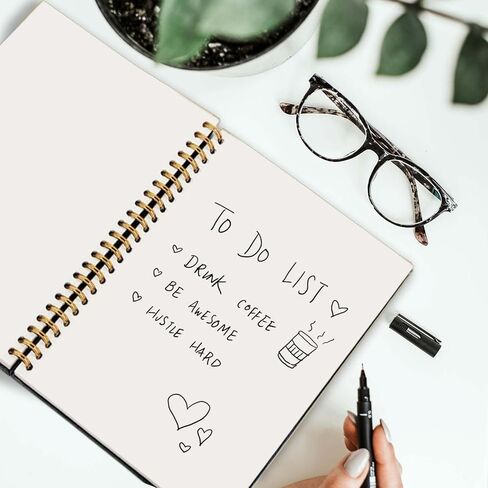 TO DO LIST
DRINK COFFEE
BE AWESOME
HUSTLE HARD